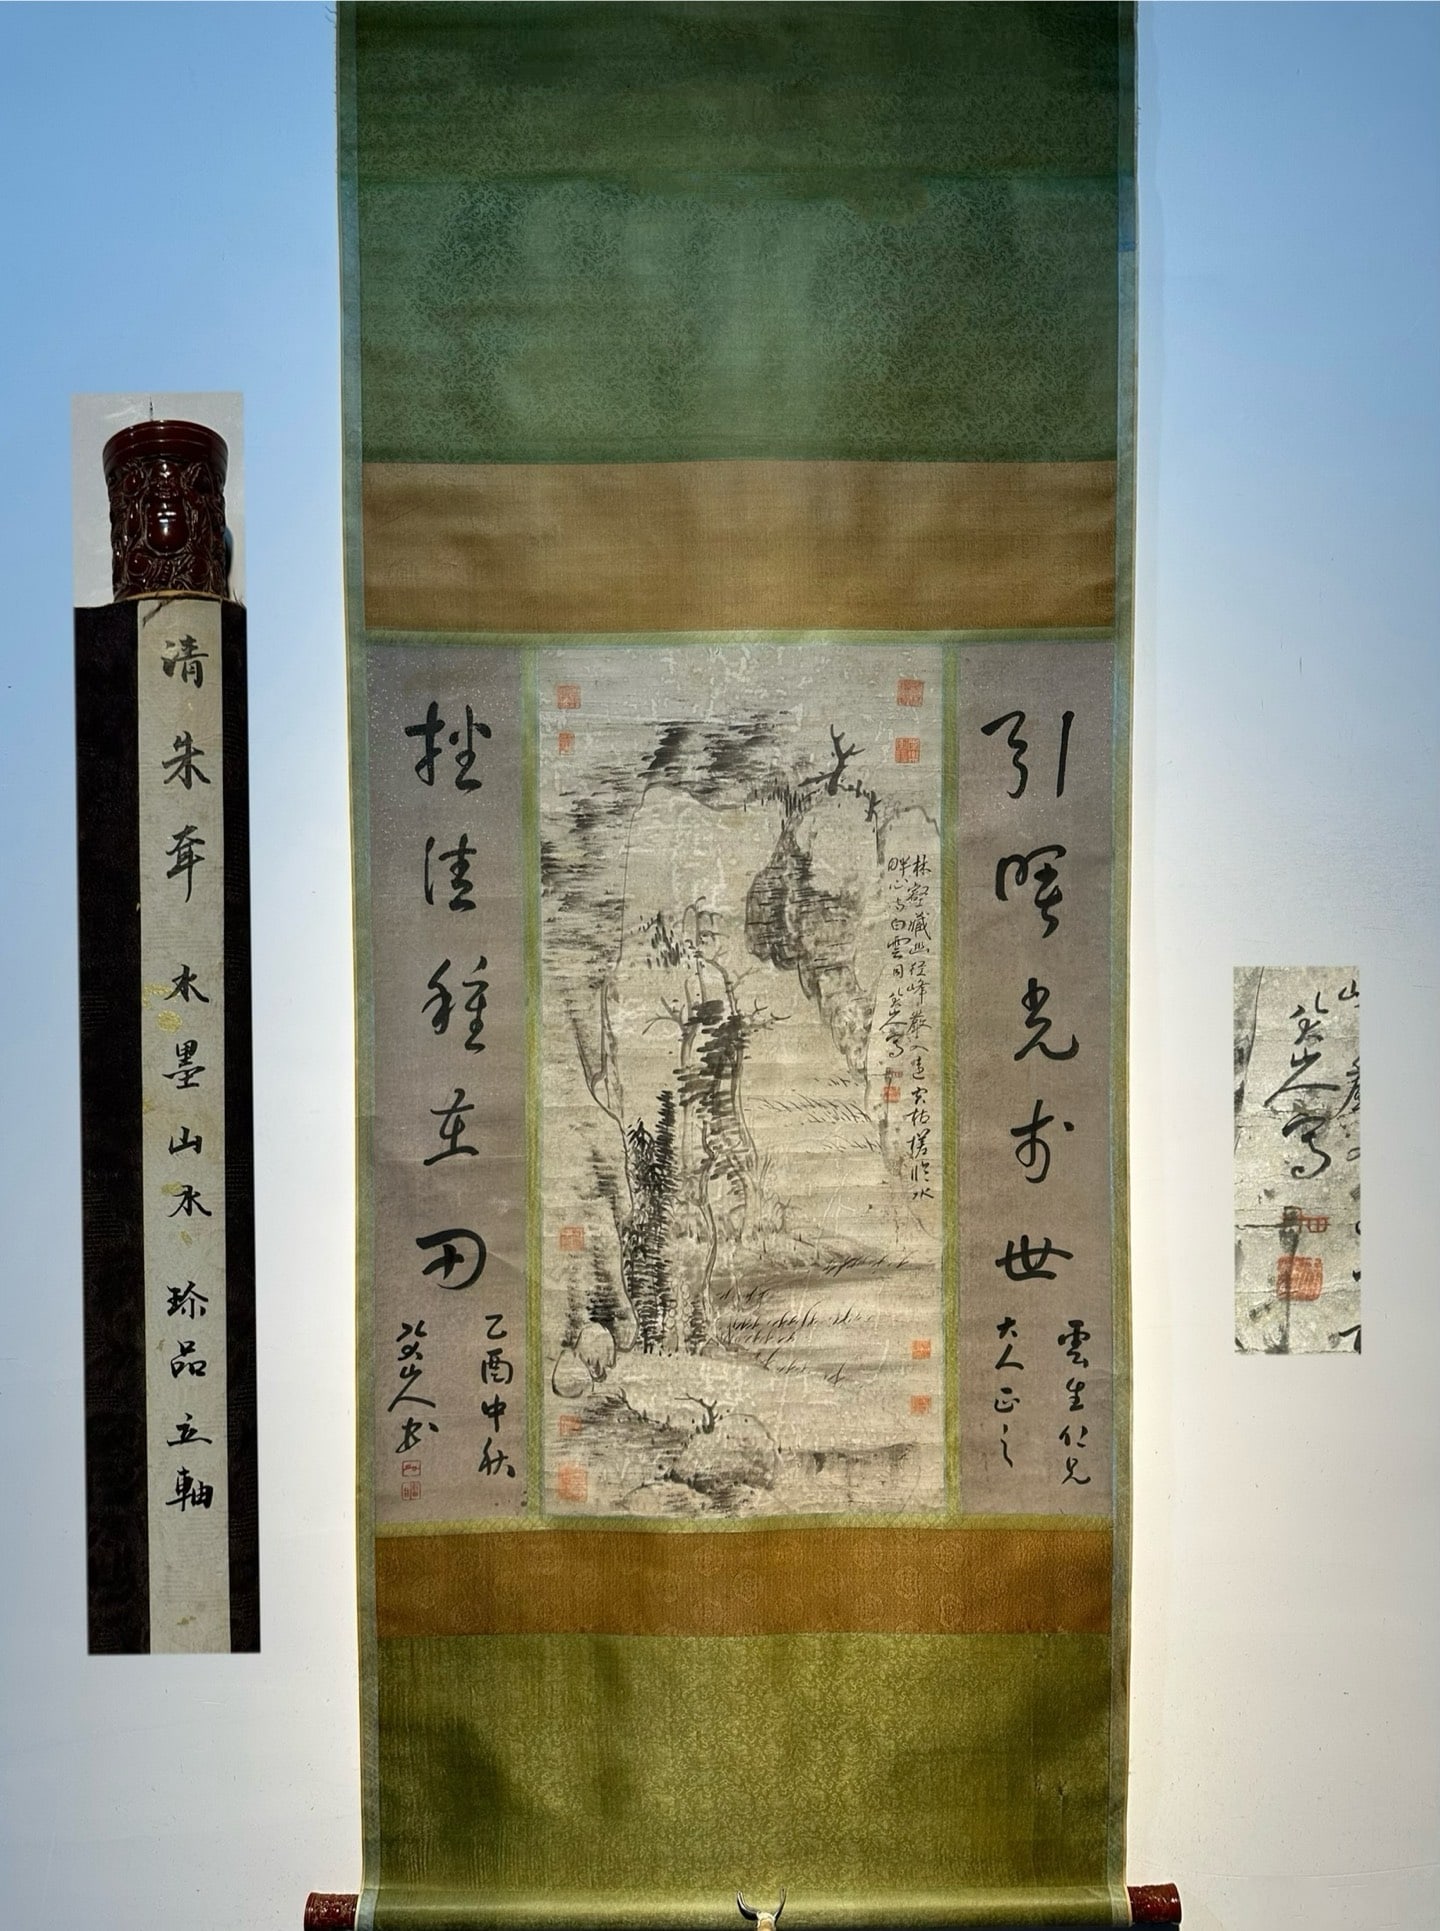 清朱耷水墨山水珍品立軸
引曙光于世
雲生仁兄
大人正之
林壑藏幽徑峰巖入遠
枯槎臨水
畔心与白雲同
八大山人寫
佳種在田
乙酉中秋
八大山人書
八大山人寫